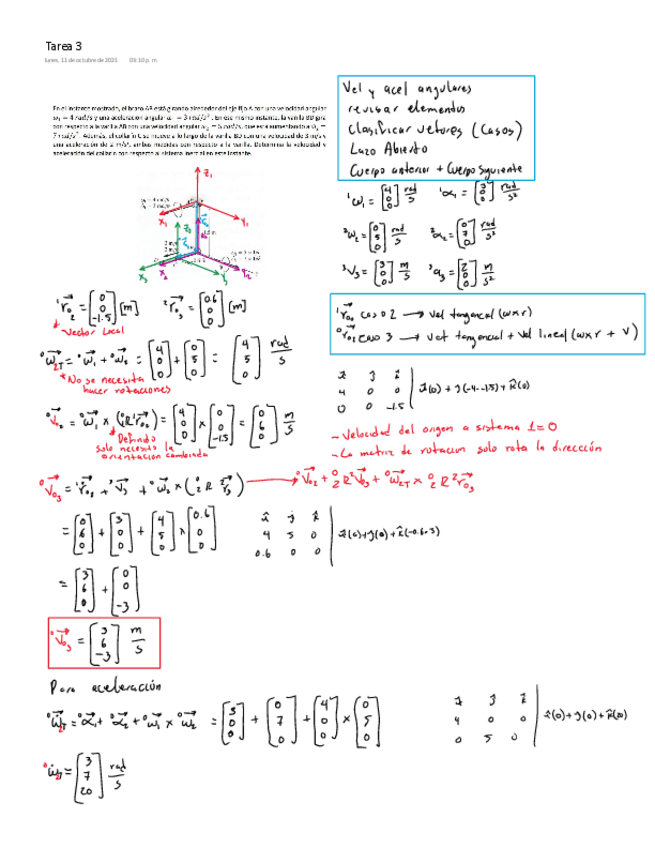 Tarea 3
lunes, 11 de octubre de 2021 03:10 p. m.
En el instante mostrado, el brazo AB está girando alrededor del eje fijo A con una velocidad angular
ω₁ = 4 rad/s y una aceleración angular = 3 rad/s². En ese mismo instante, la varilla BD gira
con respecto a la varilla AB con una velocidad angular ω₂ = 5 rad/s, que está aumentando a =
7 rad/s². Además, el collarín C se mueve a lo largo de la varilla BD con una velocidad de 3 m/s y
una aceleración de 2 m/s², ambas medidas con respecto a la varilla. Determina la velocidad y
aceleración del collarín con respecto al sistema inercial en este instante.
Vel y acel angulares
revisar elementos
Clasificar vetores (Casos)
Lazo Abierto
Cuerpo anterior + Cuerpo siguiente
¹ω₁ = [4 0 0] rad/s ¹α₁ = [3 0 0] rad/s²
²ω₂ = [0 5 0] rad/s ²α₂ = [0 7 0] rad/s²
³V₃ = [3 0 0] m/s ³a₃ = [2 0 0] m/s²
Z₁
X₁ Y₁
X₂
¹r₀₂ = [0 0 -1.5] [m] ²r₀₃ = [0.6 0 0] [m]
* Vector local
¹r₀₂ caso 2 → Vel tangencial (w x r)
⁰r₀₂ caso 3 → vet tangencial + vel lineal (w x r + v)
⁰ω₂T = ⁰ω₁ + ⁰ω₂ = [4 0 0] + [0 5 0] = [4 5 0] rad/s
* No se necesita
hacer rotaciones
4 0 0 | (0) + j(-4·-1.5) + k(0)
0 0 -1.5
⁰V₀₂ = ⁰ω₁ x (⁰₁R ¹r₀₂) = [4 0 0] x [0 0 -1.5] = [0 6 0] m/s
* Definido
solo necesito la
orientacion cambiada
- Velocidad del origen a sistema 1=0
- La matriz de rotacion solo rota la dirección
→ ⁰V₀₂ + ⁰₂R ²V₀₃ + ⁰ω₂T x ⁰₂R ²r₀₃
= [0 6 0] + [3 0 0] + [4 5 0] x [0.6 0 0]
4 5 0 | (0) + j(0) + k(-0.6·5)
0.6 0 0
= [3 6 0] + [0 0 -3]
⁰V₀₃ = [3 6 -3] m/s
Para aceleración
= ⁰α₁ + ⁰α₂ + ⁰ω₁ x ⁰ω₂ = [3 0 0] + [0 7 0] + [4 0 0] x [0 5 0]
4 0 0 | (0) + j(0) + k(20)
0 5 0
= [3 7 20] rad/s